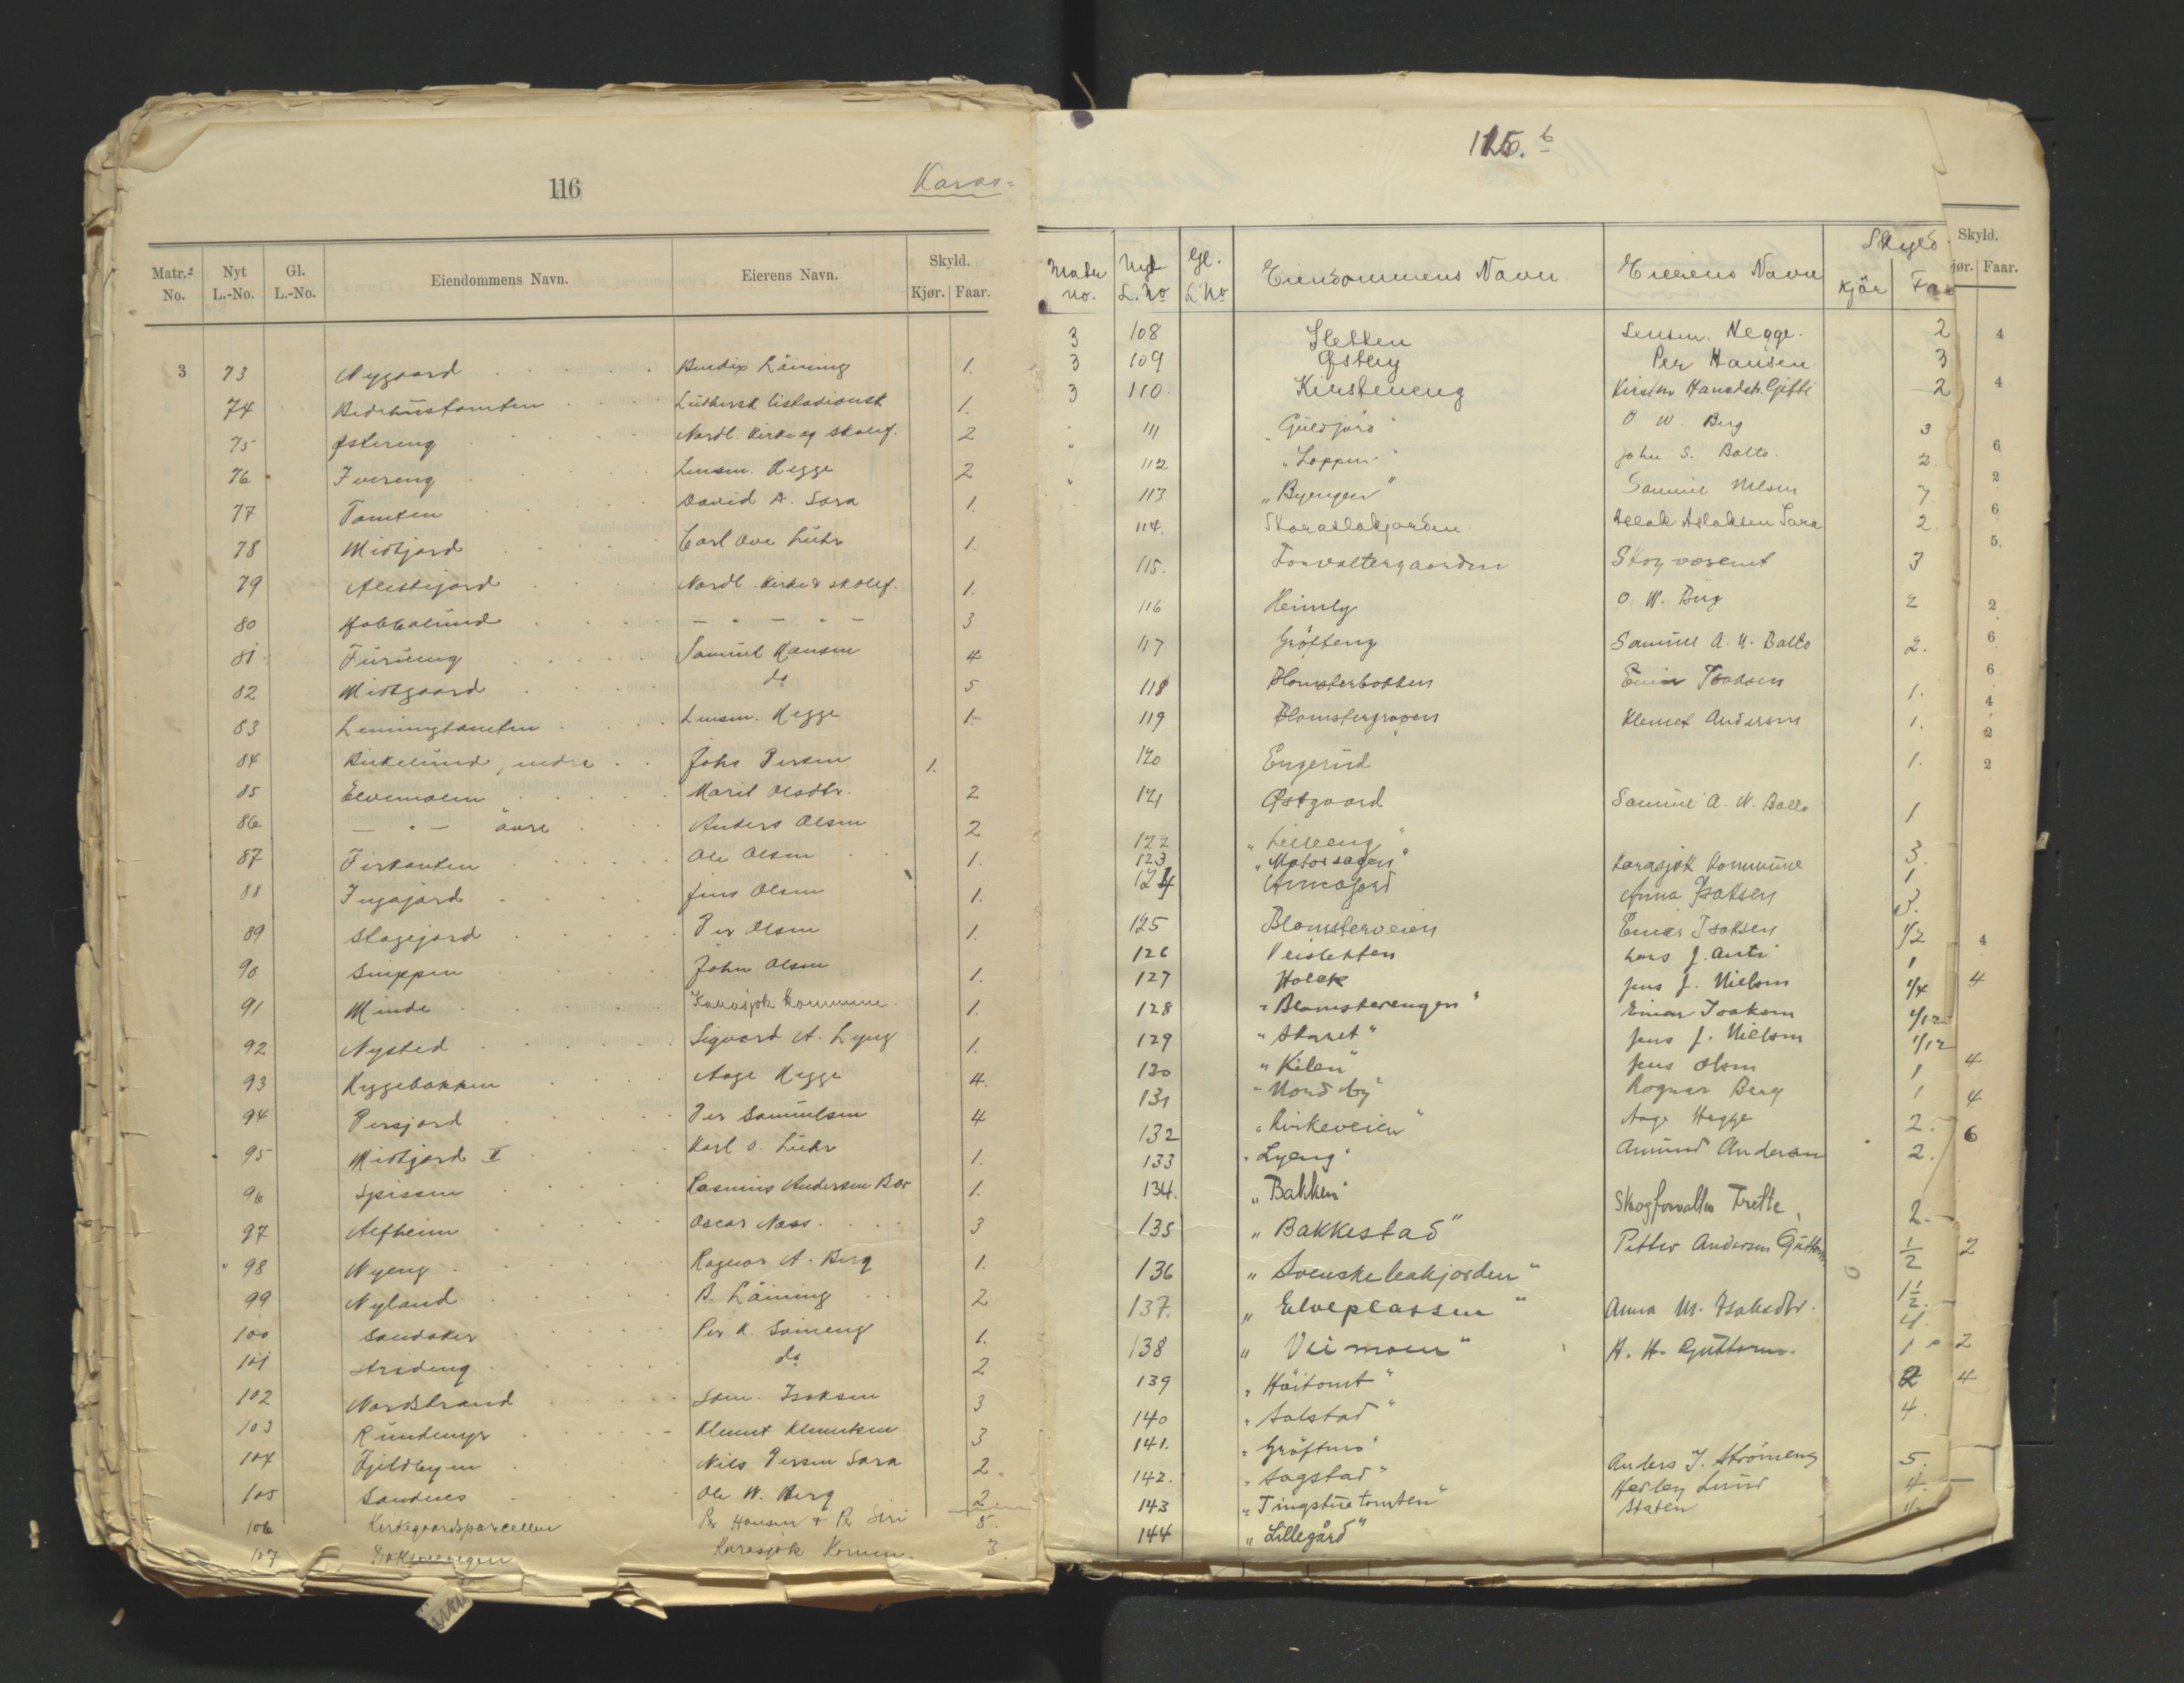 116
Karas=
Matr.-No. Nyt L.-No. Gl. L.-No. Eiendommens Navn. Eierens Navn. Skyld. Kjør. Faar.
3 73 Nygaard Bendix Läining 1.
74 Bedehustomten Luthersk 1.
75 Østereng Nordl. Kirke og skolef. 2
76 Ivereng Lensm. Hegge 2
77 Tomten David A. Sara 1.
78 Midtjord Carl Ove Luhr 1.
79 Nordl. Kirke & skolef. 1.
80 — " — " — 3
81 Furueng Samuel Hansen 4
82 Midtgaard do 5
83 Lemmingtomten Lensm. Hegge 1.
84 Birkelund, indre John Persen 1.
85 Elvemolen Marit Olsdtr. 2
86 — " — övre Anders Olsen 2
87 Firkanten Ole Olsen 1.
88 Ingajord Jens Olsen 1.
89 Stagejord Per Olsen 1.
90 Snippen John Olsen 1.
91 Minde Karasjok kommune. 1.
92 Nysted Sigvard A. Lyng 1.
93 Hyggebakken Aage Hegge 4.
94 Persjord Per Samuelsen 4
95 Midtjord II Karl O. Luhr 1.
96 Spissen Rasmus Andersen Bær 1.
97 Alfheim Oscar Næss. 3
98 Nyeng Ragnar A. Berg 1.
99 Nyland B. Läining 2
100 Sandaker Per K. Someng 1.
101 Arideng do 2
102 Nordstrand Sam. Isaksen 3
103 Rundmyr Klemet Klemetsen 3
104 Fjeldbyen Nils Persen Sara 2.
105 Sandnes Ole W. Berg 2
106 Kirkegaardsparcellen Per Hansen & Per Siri 5.
107 Karasjok Komm. 3.
115. b
Matr no. Nyt L. No Gl. L No Eiendommens Navn. Eierens Navn Skyld Kjör
3 108 Sletten Lensm. Hegge. 2
3 109 Østby Per Hansen 3
3 110. Kirsteneng Kirsten Hansdtr. Gitti 2
" 111 "Guldjord" O. W. Berg 3
" 112 "Loppen" John S. Balto. 2.
" 113 "Byengen" Samuel Nilsen 7.
114. Storaslakjorden. Aslak Aslaksen Sara 2.
115. Forvaltergaarden Skogvæsenet 3
116 Heimly O. W. Berg 2
117 Gröfteng Samuel A. N. Balto 2.
118 Blomsterbakken Einar Isaksen 1.
119 Blomstergropen Klemet Andersen 1.
120 Engerud 1.
121 Østgaard Samuel A. N. Balto 1
122 "Lilleeng" 3.
123 "Motorsagen" Karasjok Kommune 1
124 Annajord Anna Isaksen 3.
125 Blomsterveien Einar Isaksen 1/2
126 Veisletten Lars J. Anti 1
127 Holek Jens J. Nielsen 1/4
128 "Blomsterengen" Einar Isaksen 1/12
129 "Skaret" Jens J. Nielsen 1/12
130 "Kilen" Jens Olsen 1
131 "Nordby" Ragnar Berg 1
132 "Kirkeveien" Aage Hegge 2.
133 "Lyeng" Amund Andersen 2.
134. "Bakken" Skogforvalter Frette 2.
135 "Bakkestad" Petter Andersen Guttorm 1/2
136 "Svenskebakjorden" 1 1/2.
137. "Elveplassen" Anna M. Isaksdtr. 4.
138 "Veimoen" H. H. Guttorm. 1
139 "Höitomt" 2
140 "Solstad" 4.
141. "Gröftmo"
142. "Sagstad" Anders J. Strömeng 5.
143 "Tingstuetomten" Hedley Lund 4.
144 "Lillegård" Staten
Skyld.
Faar.
4
4
6
2
6
5.
2
6
6
4
2
2
4
4
4
4
6
2
2
4